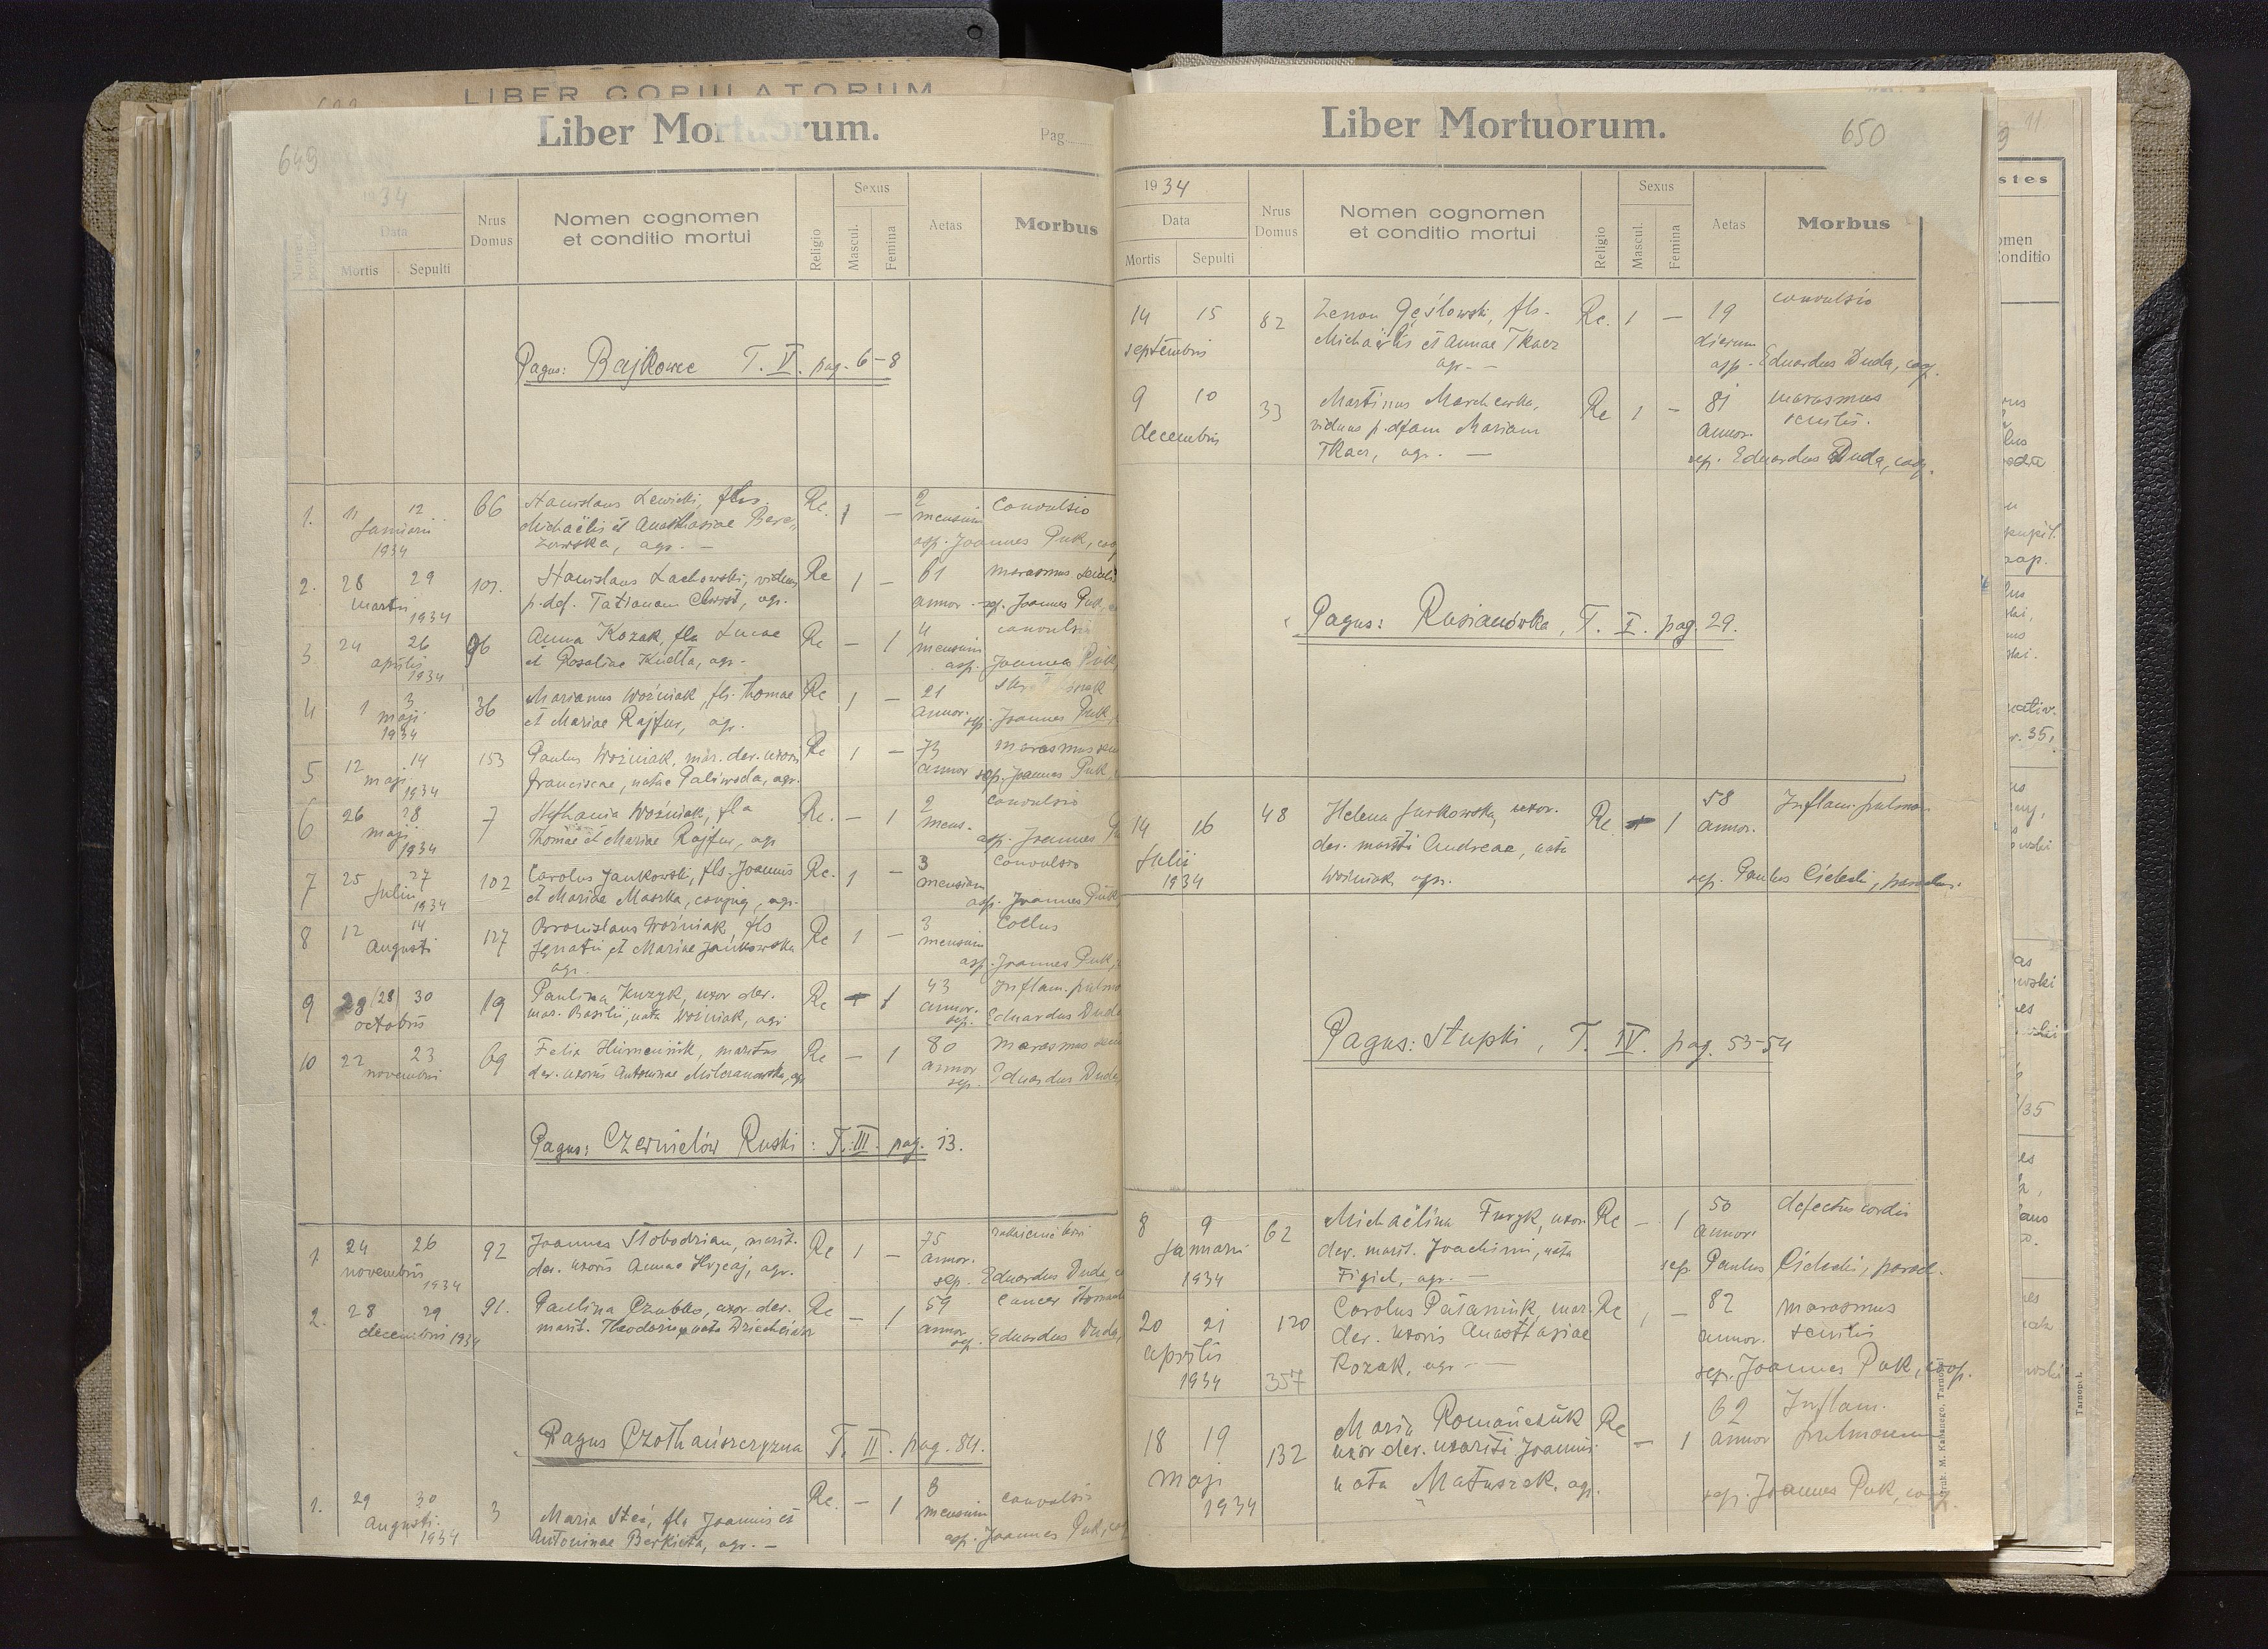 LIBER COPULATORUM
Liber Mortuorum.
Pag.
649
1934
Data
Mortis
Sepulti
Nrus Domus
Nomen cognomen
et conditio mortui
Religio
Sexus
Mascul.
Femina
Aetas
Morbus
Pagus: Bajkowce T. V. pag. 6-8
1. 11 12 66 Stanislaus Lewicki, fls. Re. 1 — 2 Convulsio
Januarii Michaëlis et Anasthasiae Bere„ mensium
1934 zowska, agr. — asp. Joannes Puk, coo
2. 28 29 101. Stanislaus Lachowski, viduus Re 1 — 61 marasmus senilis
martii 1934 p. def. Tatianam Chwist, agr. annor. sep. Joannes Puk,
3 24 26 96 Anna Kozak, fla Lucae Re — 1 4 convulsio
aprilis 1934 et Rosaliae Kudła, agr. mensium asp. Joannes Puk
4 1 3 36 Marianus Woźniak, fls. Thomae Re 1 — 21
maji 1934 et Mariae Rajfur, agr. annor. sep. Joannes Puk,
5 12 14 153 Paulus Woźniak, mar. der. uxoris Re 1 — 73 marasmus sen
maji 1934 Franciscae, natae Paliwoda, agr. annor sep. Joannes Puk,
6 26 28 7 Stephania Woźniak, fla Re. — 1 2 convulsio
maji 1934 Thomae et Mariae Rajfur, agr mens. asp. Joannes
7 25 27 102 Carolus Jankowski, fls. Joannis Re. 1 — 3 convulsio
Julii 1934 et Mariae Maszka, conjug., agr. mensium asp. Joannes Puk
8 12 14 127 Bronislaus Woźniak, fls Re 1 — 3
Augusti Ignatii et Mariae Jankowska mensium
agr. asp. Joannes Puk,
9 29 (28) 30 19 Paulina Kuzyk, uxor der. Re 1 43 Inflam. pulmo
octobris mar. Basilii, nata Woźniak, agr annor. sep. Eduardus Duda
10 22 23 69 Felix Humeniuk, maritus Re — 1 80 marasmus sen
novembri der. uxoris Antoninae Milczanowska, agr annor sep. Eduardus Duda
Pagus: Czernielów Ruski: T. III. pag. 13.
1 24 26 92 Joannes Słobodzian, marit. Re 1 — 75
novembris 1934 der. uxoris Annae Hrycaj, agr. annor. sep. Eduardus Duda, c
2. 28 29 91. Paulina Czubko, uxor der. Re — 1 59 cancer stomach
decembris 1934 marit. Theodori, nata annor sep. Eduardus Duda,
Pagus Czołhańszczyzna T. II. pag. 84.
1. 29 30 3 Re. — 1 3 convulsio
Augusti 1934 Maria Steć, fla Joannis et mensium
Antoninae Berkieta, agr. — asp. Joannes Puk, coo
Liber Mortuorum.
650
1934
Data
Mortis
Sepulti
Nrus Domus
Nomen cognomen
et conditio mortui
Religio
Sexus
Mascul.
Femina
Aetas
Morbus
14 15 82 Zenon Gęsłowski, fls. Re. 1 — 19 convulsio
septembris Michaëlis et Annae Tkacz dierum
agr. — asp. Eduardus Duda, coop.
9 10 33 Martinus Marchewka, Re 1 — 81 marasmus
decembris viduus p. defam Mariam annor. senilis.
Tkacz, agr. — sep. Eduardus Duda, coop.
Pagus: Rusianówka, T. I. pag. 29.
14 16 48 Helena Jurkowska, uxor. Re 1 58 Inflam. pulmon
Julii der. mariti Andreae, nata annor.
1934 Woźniak agr. sep. Paulus Cielecki, parochus.
Pagus: Stupki, T. IV. pag. 53-54
8 9 62 Michaëlina Furyk, uxor Re — 1 50 defectus cordis
Januarii der. marit. Joachimi, nata annor.
1934 Figiel, agr. — sep. Paulus Cielecki, paroch.
20 21 120 Carolus Pataniuk, mar. Re 1 — 82 marasmus
aprilis der. uxoris Anasthasiae annor. senilis
1934 357 Kozak, agr. — sep. Joannes Puk, coop.
18 19 132 Maria Romańczuk Re — 1 62 Inflam.
maji uxor der. mariti Joannis annor pulmonum
1934 nata Matuszek, agr. sep. Joannes Puk, coop.
Druk. M. Kahanego, Tarnopol
stes
omen
onditio
Tarnopol.